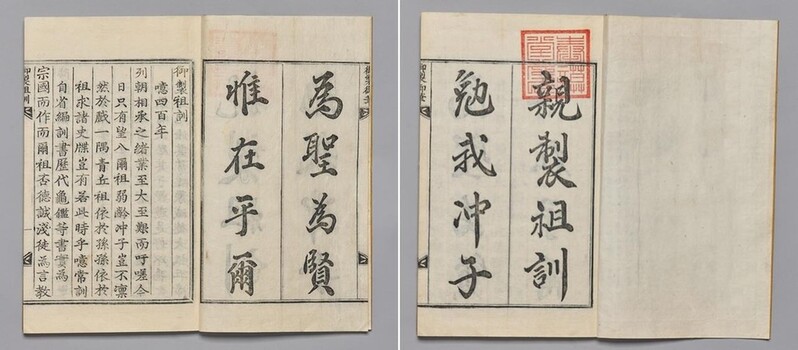 親製祖訓
勉我冲子
為聖為賢
惟在乎爾
御製祖訓
噫四百年
列朝相承之緒業至大至艱而吁嗟今
日只有望八爾祖弱齡冲子豈不凛
然於戲一隅青丘祖依於孫孫依於
祖求諸史牒豈有若此時乎噫常訓
自省編訓書歷代龜鑑等書實為
宗國而作而爾祖否德誠淺徒為言敎
御製祖訓
一